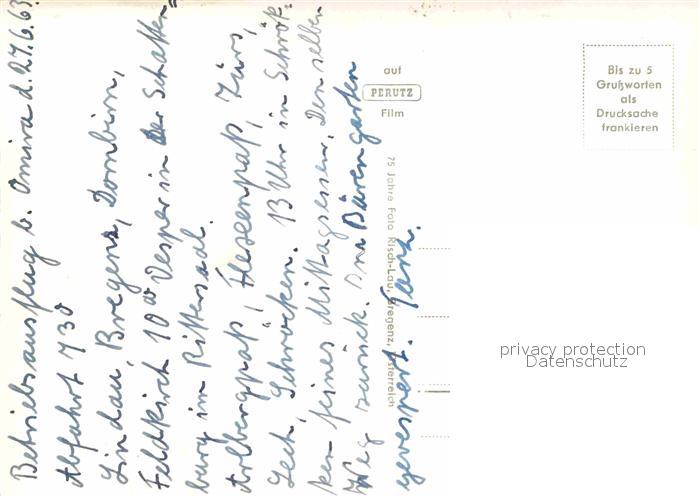 Betriebsausflug b. Omira d. 27.6.63
Abfahrt 7 30
Lindau, Bregenz, Dornbirn,
Feldkirch 10 00 Vesper in der Schatten=
burg im Rittersaal.
Arlbergpaß, Flexenpaß, Zürs,
Lech, Schröcken. 13 Uhr in Schrök-
ken feines Mittagessen. Den selben
Weg zurück. Im Bärengarten
gevespert. Tanz.
auf
PERUTZ
Film
75 Jahre Foto Risch-Lau, Bregenz, Österreich
Bis zu 5
Grußworten
als
Drucksache
frankieren
privacy protection
Datenschutz